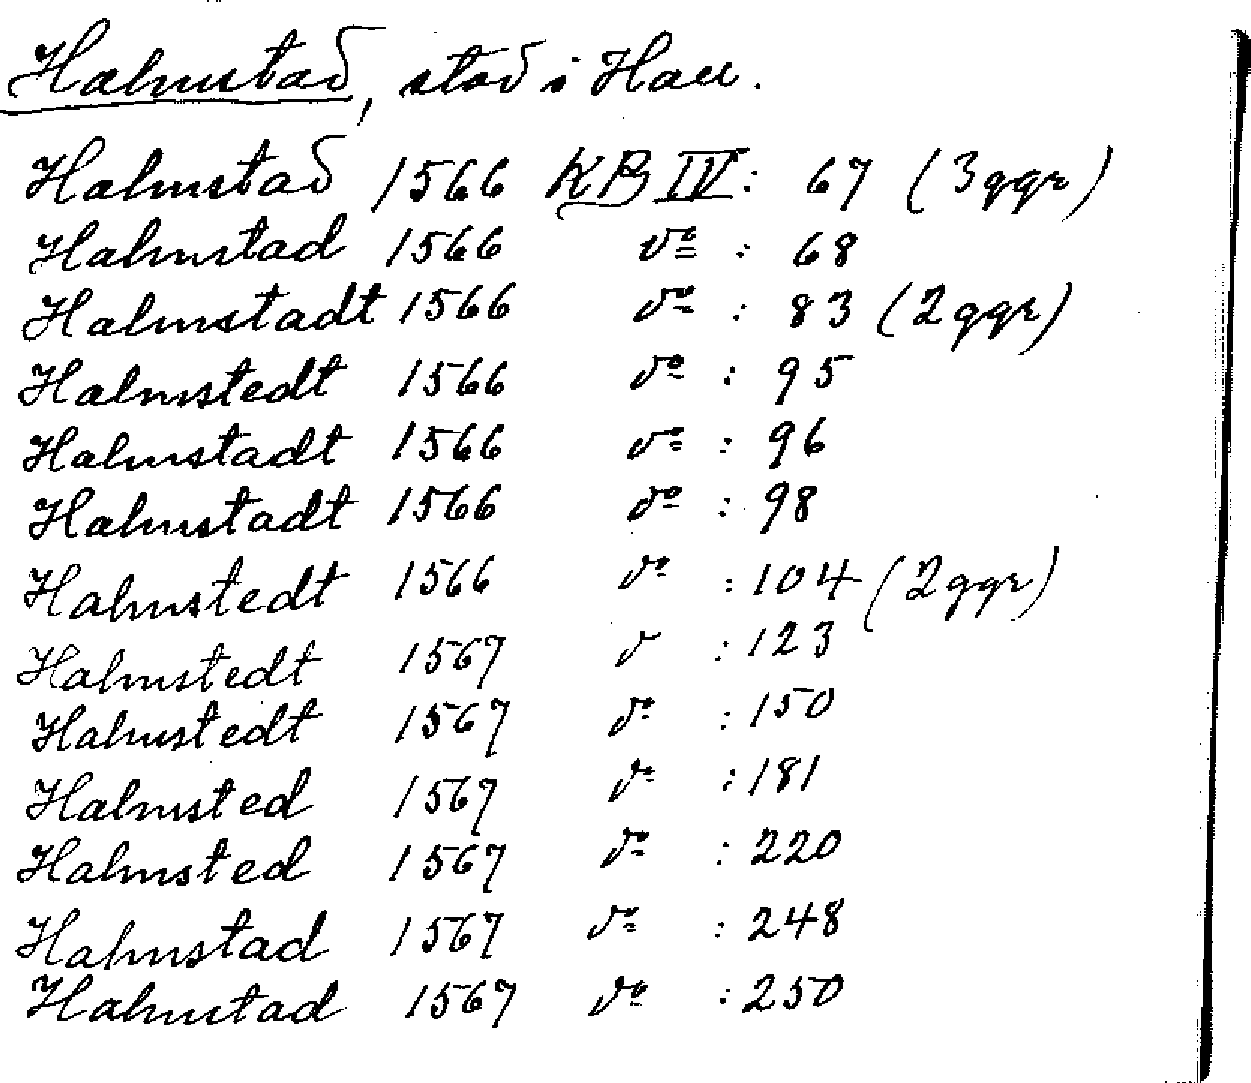 Halmstad, stad i Hall.
Halmstad 1566 KB IV: 67 (3 ggr)
Halmstad 1566 do : 68
Halmstadt 1566 do : 83 (2 ggr)
Halmstedt 1566 do : 95
Halmstadt 1566 do : 96
Halmstadt 1566 do : 98
Halmstedt 1566 do : 104 (2 ggr)
Halmstedt 1567 d : 123
Halmstedt 1567 do : 150
Halmsted 1567 do : 181
Halmsted 1567 do : 220
Halmstad 1567 do : 248
Halmstad 1567 do : 250